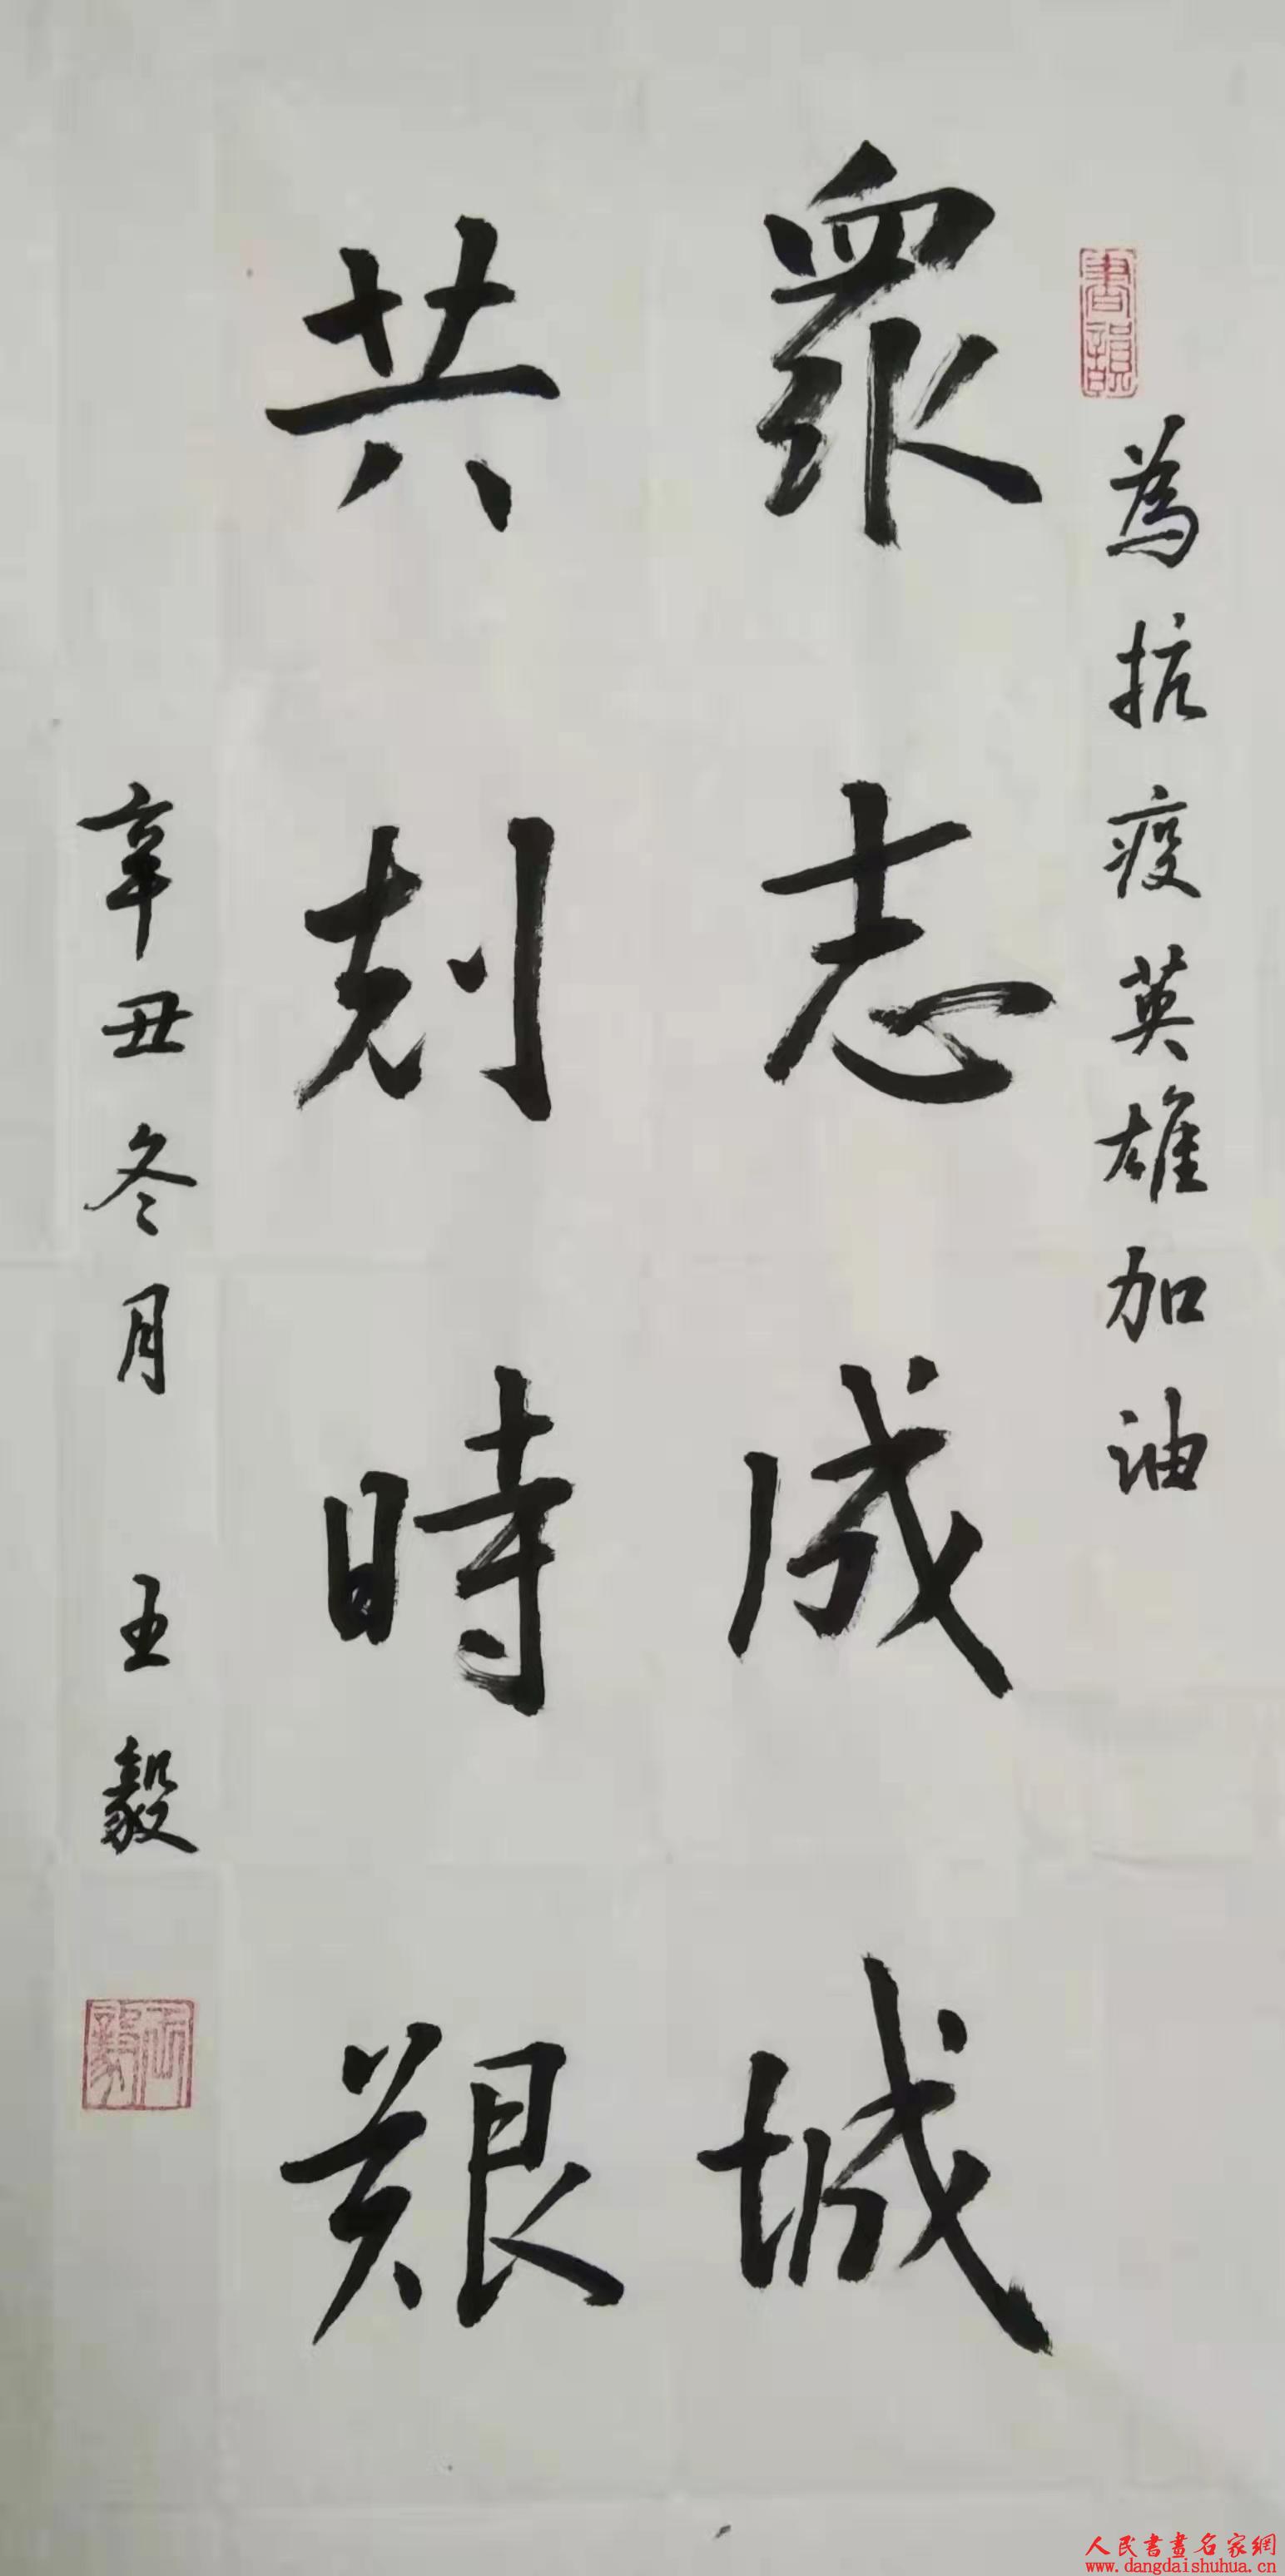 為抗疫英雄加油
衆志成城
共剋時艱
辛丑冬月 王毅
書韻
王毅
人民書畫名家網
www.dangdaishuhua.cn